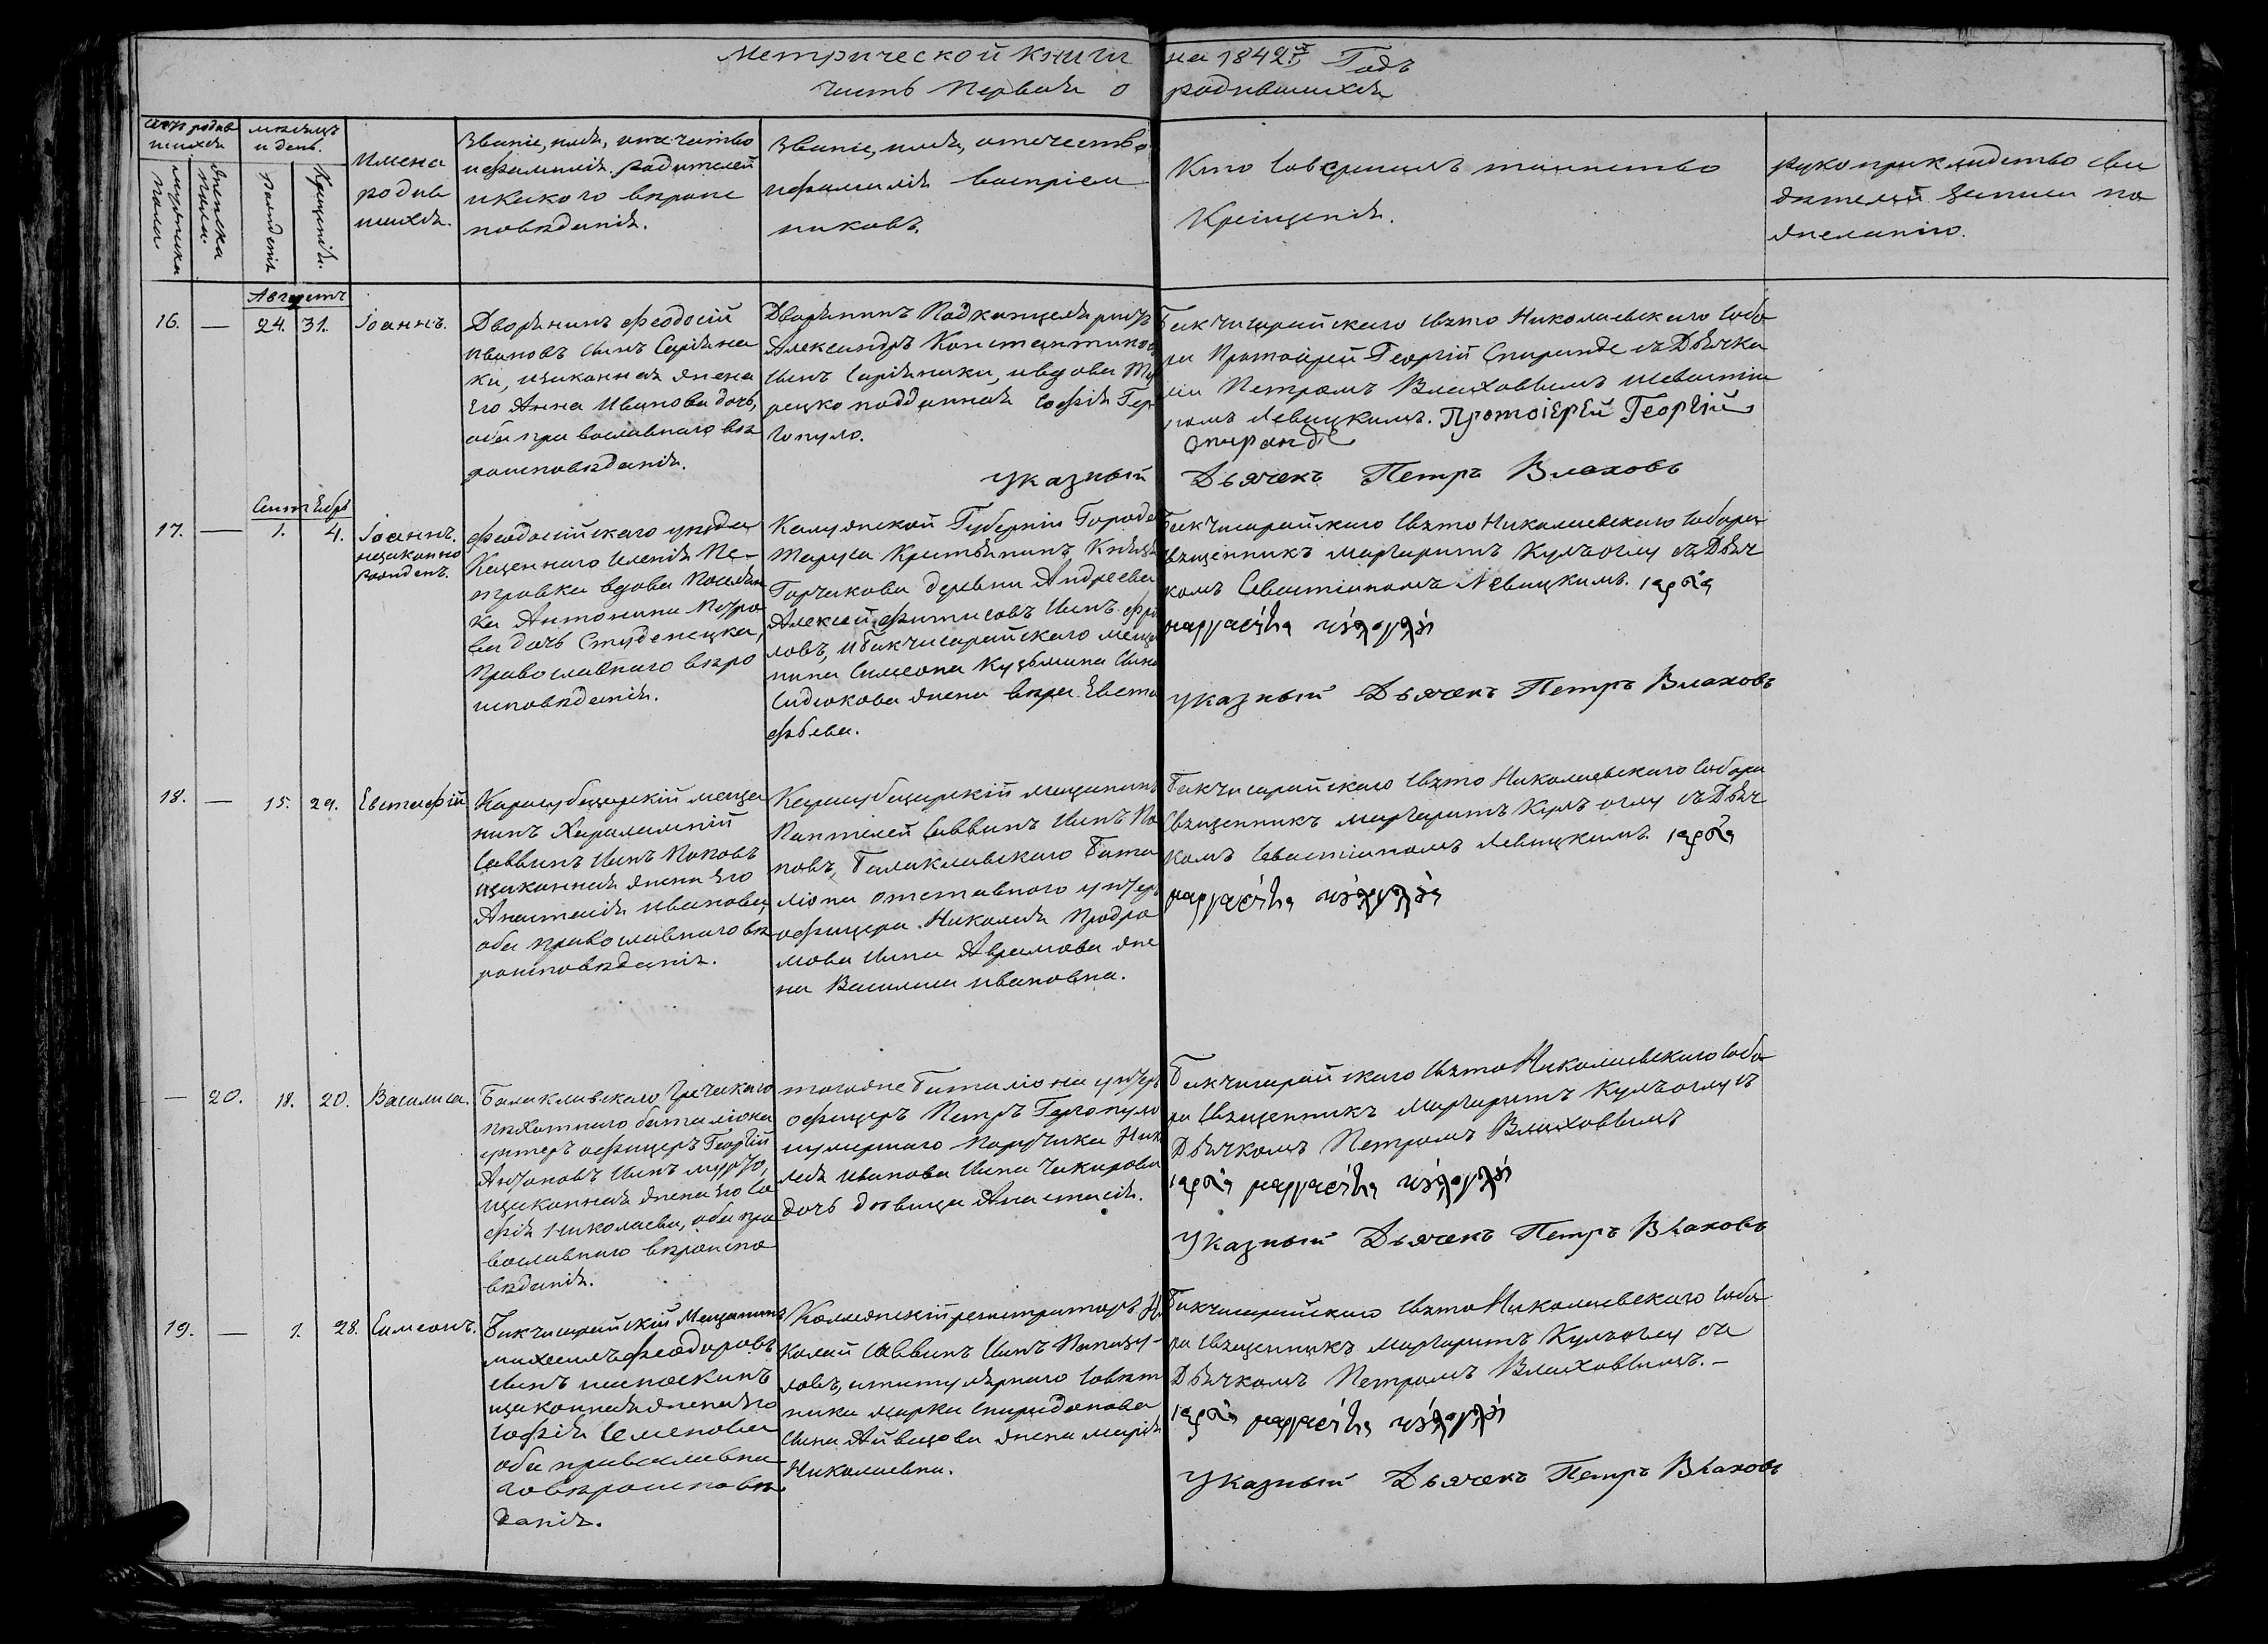 Метрической книги на 1842й Годъ
часть Первая о родившихся
Счетъ родив
шихся
мужеска
пола
женска
пола.
мѣсяцъ
и день.
рожденія
Крещенія.
Имена
родив
шихся.
Званіе, имя, отечество
и фамилія родителей
и какого вѣроис
повѣданія.
Званіе, имя, отечество
и фамилія воспріем
никовъ.
Кто совершилъ таинство
Крещенія.
рукоприкладство сви
дѣтелей записи по
желанію.
Августъ
16. — 24. 31. Іоаннъ.
Дворянинъ Феодосій
Ивановъ сынъ Сарына
ки, изаконная жена
Его Анна Иванова дочь,
оба православнаго вѣ
роисповѣданія.
Дворянинъ Подканцеляристъ
Александръ Константинов
сынъ Сарынаки, и вдова Ту
рецко подданная Софія Гер
гопуло.
Бакчисарайскаго Свято Николаевскаго Собо
ра Протоіерей Георгій Спиранде съ Дьячка
ми Петромъ Влаховымъ и Севастія
номъ Левицкимъ. Протоіерей Георгій
Спиранде
Указный Дьячекъ Петръ Влаховъ
Сентябрь
17. — 1. 4. Іоаннъ.
незаконно
рожденъ.
Феодосійскаго уѣзда
Казеннаго Имѣнія Пе-
тровка вдова
Антонина Петро
ва дочь Студенецка,
Православнаго вѣро
исповѣданія.
Калужской Губерніи Города
Таруса Крестьянинъ Князя
Горчакова деревни Андреева
Алексей сынъ
ловъ, и Бакчисарайскаго меща
нина Симеона Кузьмина сына
Сидюкова жена Вѣра Евста
фьева.
Бакчисарайскаго Свято Николаевскаго Собора
священникъ Маргаритъ Кулъоглу съ Дьяч
комъ Севастіаномъ Левицкимъ.
Указный Дьячекъ Петръ Влаховъ
18. — 15. 29. Евстафій
Карасубазарскій меща
нинъ Харалампій
Саввинъ сынъ Поповъ
изаконная жена Его
Анастасія Иванова,
оба православнаго вѣ
роисповѣданія.
Карасубазарскій мещанинъ
Пантелей Саввинъ сынъ По
повъ, Балаклавскаго Бата
ліона отставного унтеръ
офицера Николая Продро
мова сына Аврамова же
на Василиса Ивановна.
Бакчисарайскаго Свято Николаевскаго Собора
Священникъ Маргаритъ Кулъоглу съ Дьяч
комъ Севастіаномъ Левицкимъ.
— 20. 18. 20. Василиса.
Балаклавскаго Греческаго
пѣхотнаго баталіона
унтеръ офицеръ Георгій
Антоновъ сынъ
изаконная жена Его Со
фія Николаева, оба пра
вославнаго вѣроиспо
вѣданія.
тогоже Баталіона унтеръ
офицеръ Петръ Гергопуло
и умершаго Поручика Нико
лая Иванова сына Чакирова
дочь дѣвица Анастасія.
Бакчисарайскаго Свято Николаевскаго Собо
ра Священникъ Маргаритъ Кулъоглу съ
Дьячкомъ Петромъ Влаховымъ
Указный Дьячекъ Петръ Влаховъ
19. — 1. 28. Симеонъ.
Бакчисарайскій Мещанинъ
Михаилъ Феодоровъ
сынъ
изаконная жена Его
Софія Семенова
оба православна
го вѣроисповѣ
данія.
Коллежскій регистраторъ Ни
колай Саввинъ сынъ
ловъ, и титулярнаго Совѣт
ника Марка Спиридонова
сына Айвазова жена Марія
Николаевна.
Бакчисарайскаго Свято Николаевскаго Собо
ра Священникъ Маргаритъ Кулъоглу съ
Дьячкомъ Петромъ Влаховымъ.—
Указный Дьячекъ Петръ Влаховъ